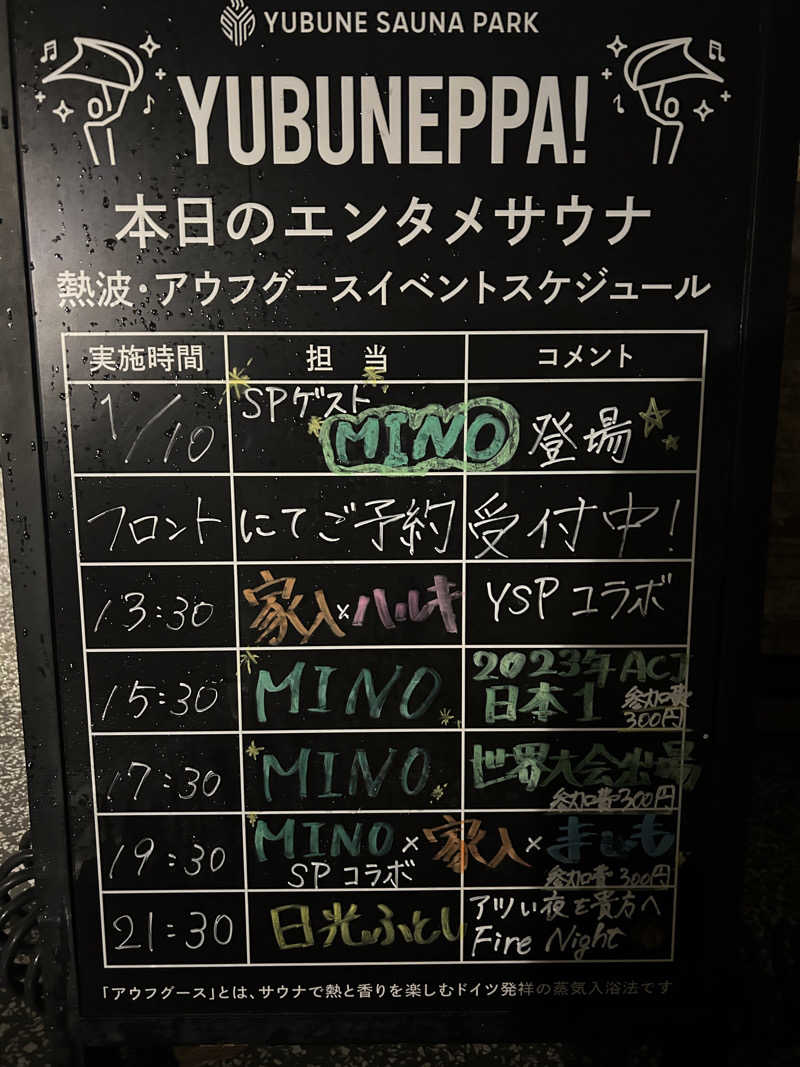 YUBUNE SAUNA PARK
YUBUNEPPA!
本日のエンタメサウナ
熱波・アウフグースイベントスケジュール
実施時間 担当 コメント
1/10 SPゲスト MINO 登場
フロントにてご予約受付中!
13:30 家入×ハルキ YSPコラボ
15:30 MINO 2023年ACJ 日本1 参加費 300円
17:30 MINO 世界大会出場 参加費300円
19:30 MINO×家入×ましも SPコラボ 参加費300円
21:30 日光ふとし アツい夜を貴方へ Fire Night
「アウフグース」とは、サウナで熱と香りを楽しむドイツ発祥の蒸気入浴法です